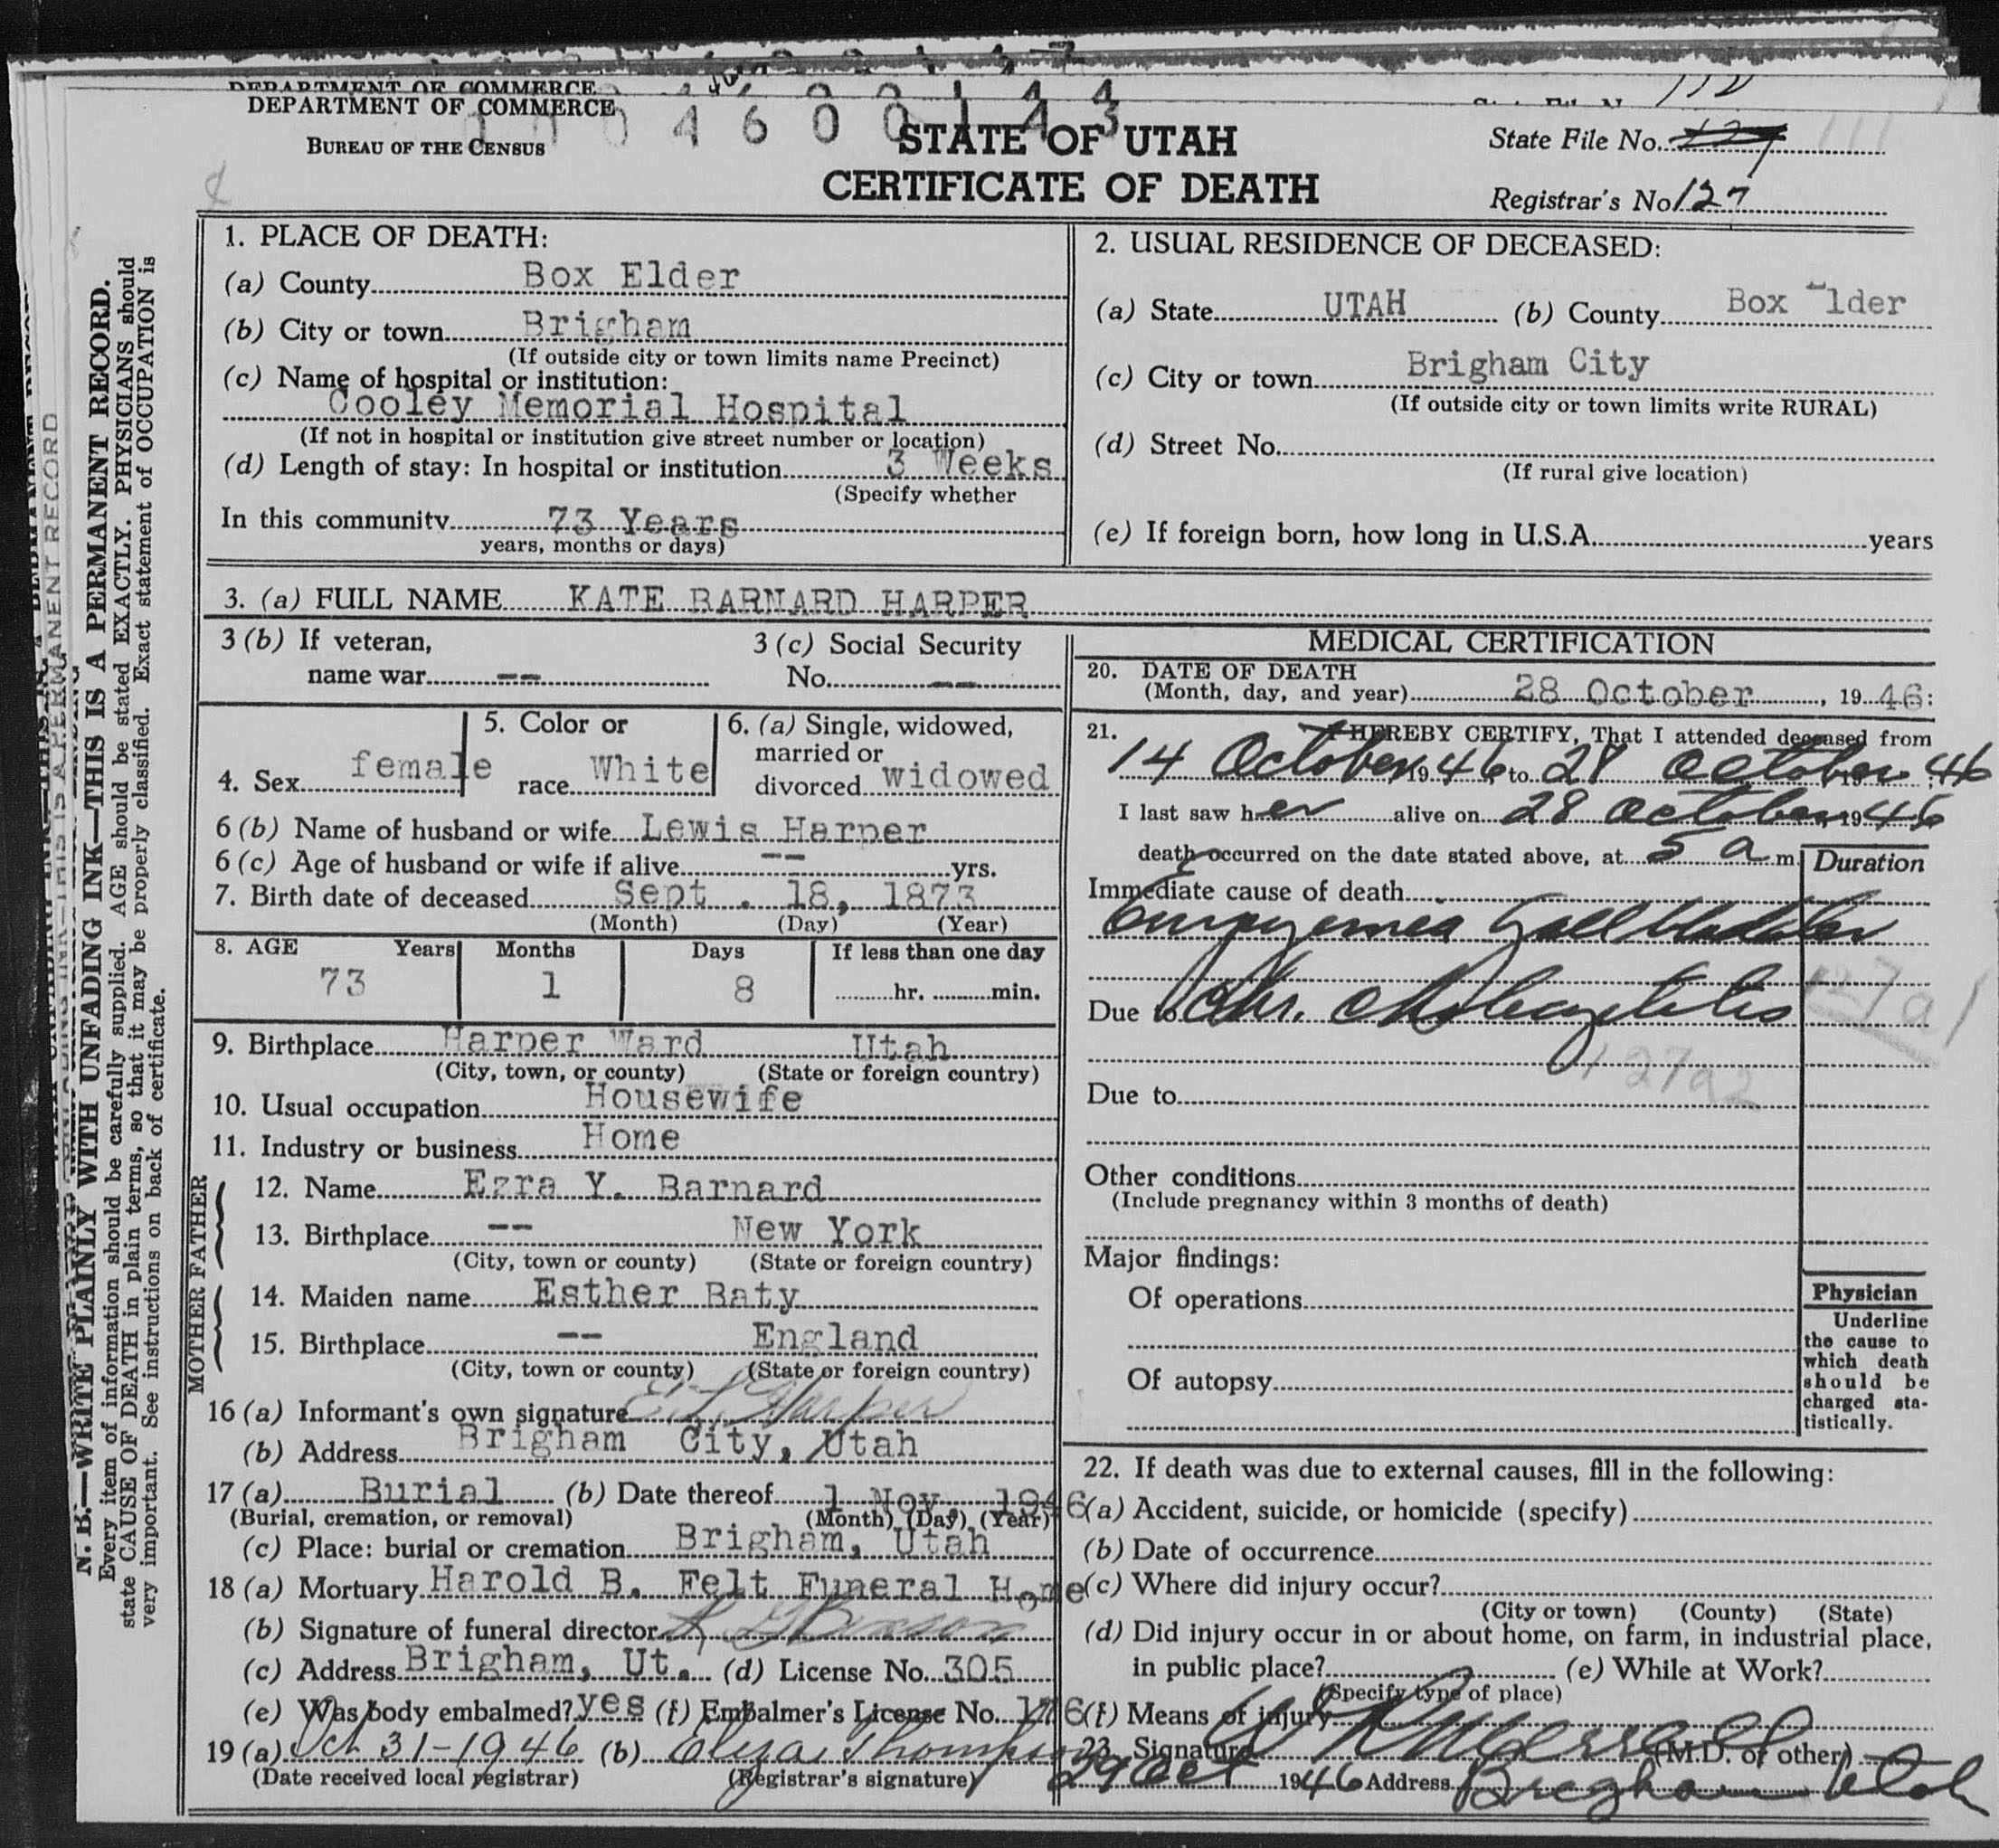 DEPARTMENT OF COMMERCE
DEPARTMENT OF COMMERCE
BUREAU OF THE CENSUS
STATE OF UTAH
CERTIFICATE OF DEATH
State File No. 127 111
Registrar's No. 127
N. B.—WRITE PLAINLY WITH UNFADING INK—THIS IS A PERMANENT RECORD.
Every item of information should be carefully supplied. AGE should be stated EXACTLY. PHYSICIANS should
state CAUSE OF DEATH in plain terms, so that it may be properly classified. Exact statement of OCCUPATION is
very important. See instructions on back of certificate.
1. PLACE OF DEATH:
(a) County Box Elder
(b) City or town Brigham
(If outside city or town limits name Precinct)
(c) Name of hospital or institution:
Cooley Memorial Hospital
(If not in hospital or institution give street number or location)
(d) Length of stay: In hospital or institution 3 Weeks
(Specify whether
In this community 73 Years
years, months or days)
2. USUAL RESIDENCE OF DECEASED:
(a) State UTAH (b) County Box Elder
(c) City or town Brigham City
(If outside city or town limits write RURAL)
(d) Street No.
(If rural give location)
(e) If foreign born, how long in U.S.A. years
3. (a) FULL NAME KATE BARNARD HARPER
3 (b) If veteran,
name war --
3 (c) Social Security
No. --
4. Sex female
5. Color or
race White
6. (a) Single, widowed,
married or
divorced widowed
6 (b) Name of husband or wife Lewis Harper
6 (c) Age of husband or wife if alive -- yrs.
7. Birth date of deceased Sept. 18, 1873
(Month) (Day) (Year)
8. AGE Years Months Days If less than one day
73 1 8 hr. min.
9. Birthplace Harper Ward Utah
(City, town, or county) (State or foreign country)
10. Usual occupation Housewife
11. Industry or business Home
FATHER
12. Name Ezra Y. Barnard
13. Birthplace -- New York
(City, town or county) (State or foreign country)
MOTHER
14. Maiden name Esther Baty
15. Birthplace -- England
(City, town or county) (State or foreign country)
16 (a) Informant's own signature E. L. Harper
(b) Address Brigham City, Utah
17 (a) Burial (b) Date thereof 1 Nov. 1946
(Burial, cremation, or removal) (Month) (Day) (Year)
(c) Place: burial or cremation Brigham, Utah
18 (a) Mortuary Harold B. Felt Funeral Home
(b) Signature of funeral director
(c) Address Brigham, Ut. (d) License No. 305
(e) Was body embalmed? yes (f) Embalmer's License No. 176
19 (a) Oct 31-1946 (b) Eliza Thompson
(Date received local registrar) (Registrar's signature)
MEDICAL CERTIFICATION
20. DATE OF DEATH
(Month, day, and year) 28 October, 1946:
21. I HEREBY CERTIFY, That I attended deceased from
14 October 1946 to 28 October 1946
I last saw her alive on 28 October, 1946
death occurred on the date stated above, at 5 a m.
Duration
Immediate cause of death
Empyemea Gall bladder
Due to Chr. Cholecystitis
127a1
127a2
Due to
Other conditions
(Include pregnancy within 3 months of death)
Major findings:
Of operations
Of autopsy
Physician
Underline
the cause to
which death
should be
charged sta-
tistically.
22. If death was due to external causes, fill in the following:
(a) Accident, suicide, or homicide (specify)
(b) Date of occurrence
(c) Where did injury occur?
(City or town) (County) (State)
(d) Did injury occur in or about home, on farm, in industrial place,
in public place? (e) While at Work?
(Specify type of place)
(f) Means of injury
23. Signature Merrell (M.D. or other)
29 Oct 1946 Address Brigham Utah